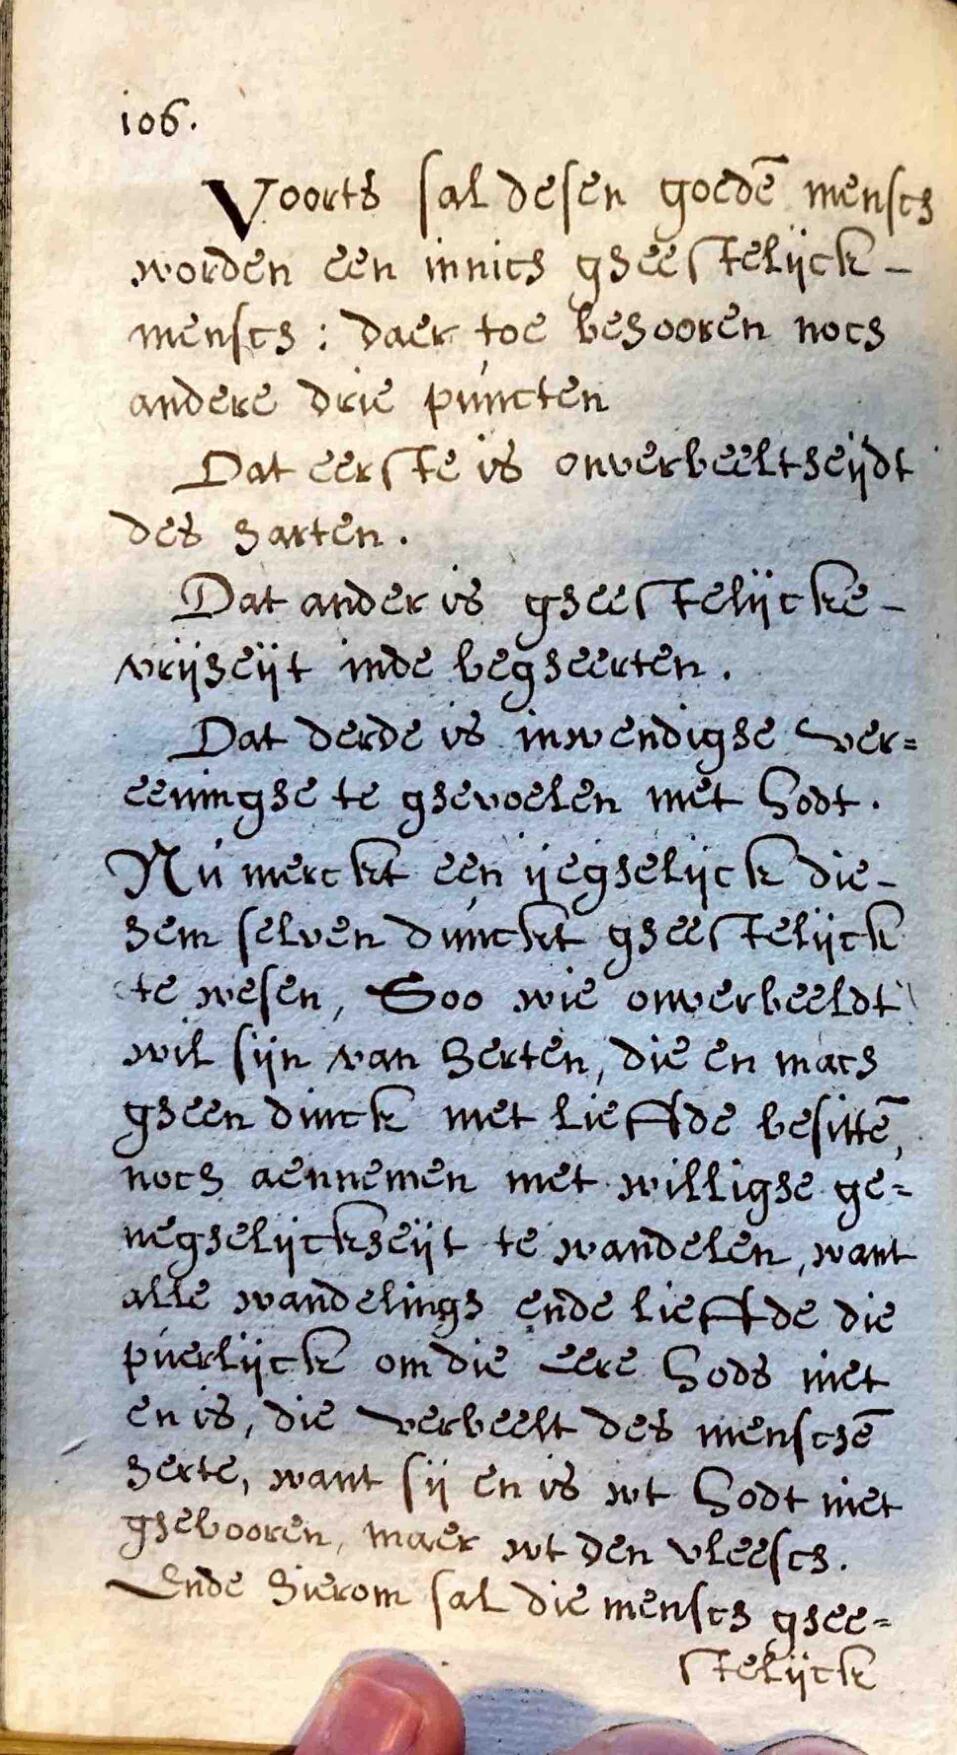 106.
Voorts sal desen goedē mensch
worden een innich gheestelijck -
mensch : daer toe behooren noch
andere drie puncten
Dat eerste is onverbeeltheijdt
des harten .
Dat ander is gheestelijcke -
vrijheijt inde begheerten .
Dat derde is inwendighe ver=
eeninghe te ghevoelen met Godt .
Nú merckt een ijeghelijck die -
hem selven dúnckt gheestelijck
te wesen, Soo wie onverbeeldt
wil sijn van herten, die en mach
gheen dinck met lieffde besittē,
noch aennemen met willighe ge=
neghelijckheijt te wandelen, want
alle wandelingh ende lieffde die
púerlijck om die eere Gods niet
en is, die verbeelt des menschē
herte, want sij en is wt Godt niet
ghebooren, maer wt den vleesch.
Ende hierom sal die mensch ghee=
stelijck